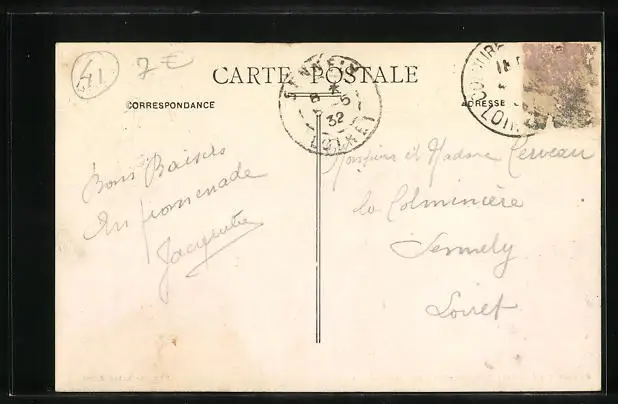 41
7€
CARTE POSTALE
CORRESPONDANCE
ADRESSE
8 *
5
32
LOIRET
LOIR
Bons Baisers
En promenade
Jacqueline
Monsieur et Madame Cerveau
la Colminière
Sennely
Loiret